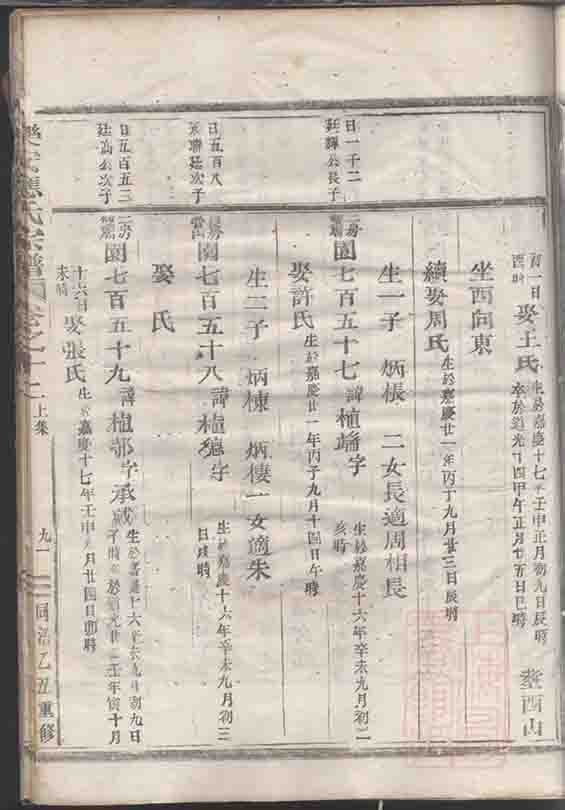 初一日
酉時 娶王氏 生於嘉慶十七年壬申正月初九日辰時
卒於道光十四甲午正月廿五日巳時 塟西山
坐酉向東
續娶周氏 生於嘉慶廿一年丙丁九月廿三日辰時
生一子 炳棖 二女長適周相長
日一千二
廷諢公長子
二房 園七百五十七 諱植端字 生於嘉慶十六年辛未九月初二
亥時
娶許氏 生於嘉慶廿一年丙子九月十四日午時
生二子 炳棟 炳樓 一女適朱
日五百八
聯廷次子
園七百五十八 諱植 字 生於嘉慶十六年辛未九月初三
日戌時
娶氏
日五百五三
廷高公次子
二房 園七百五十九 諱植鄂字承 生於嘉慶十六年 九 初九日
子時 於道光廿二壬年寅十月
十六日
未時 娶張氏 生 嘉慶十七年壬申 月廿四日卯時
應氏宗譜 卷之十 上集 九一 同治乙丑重修